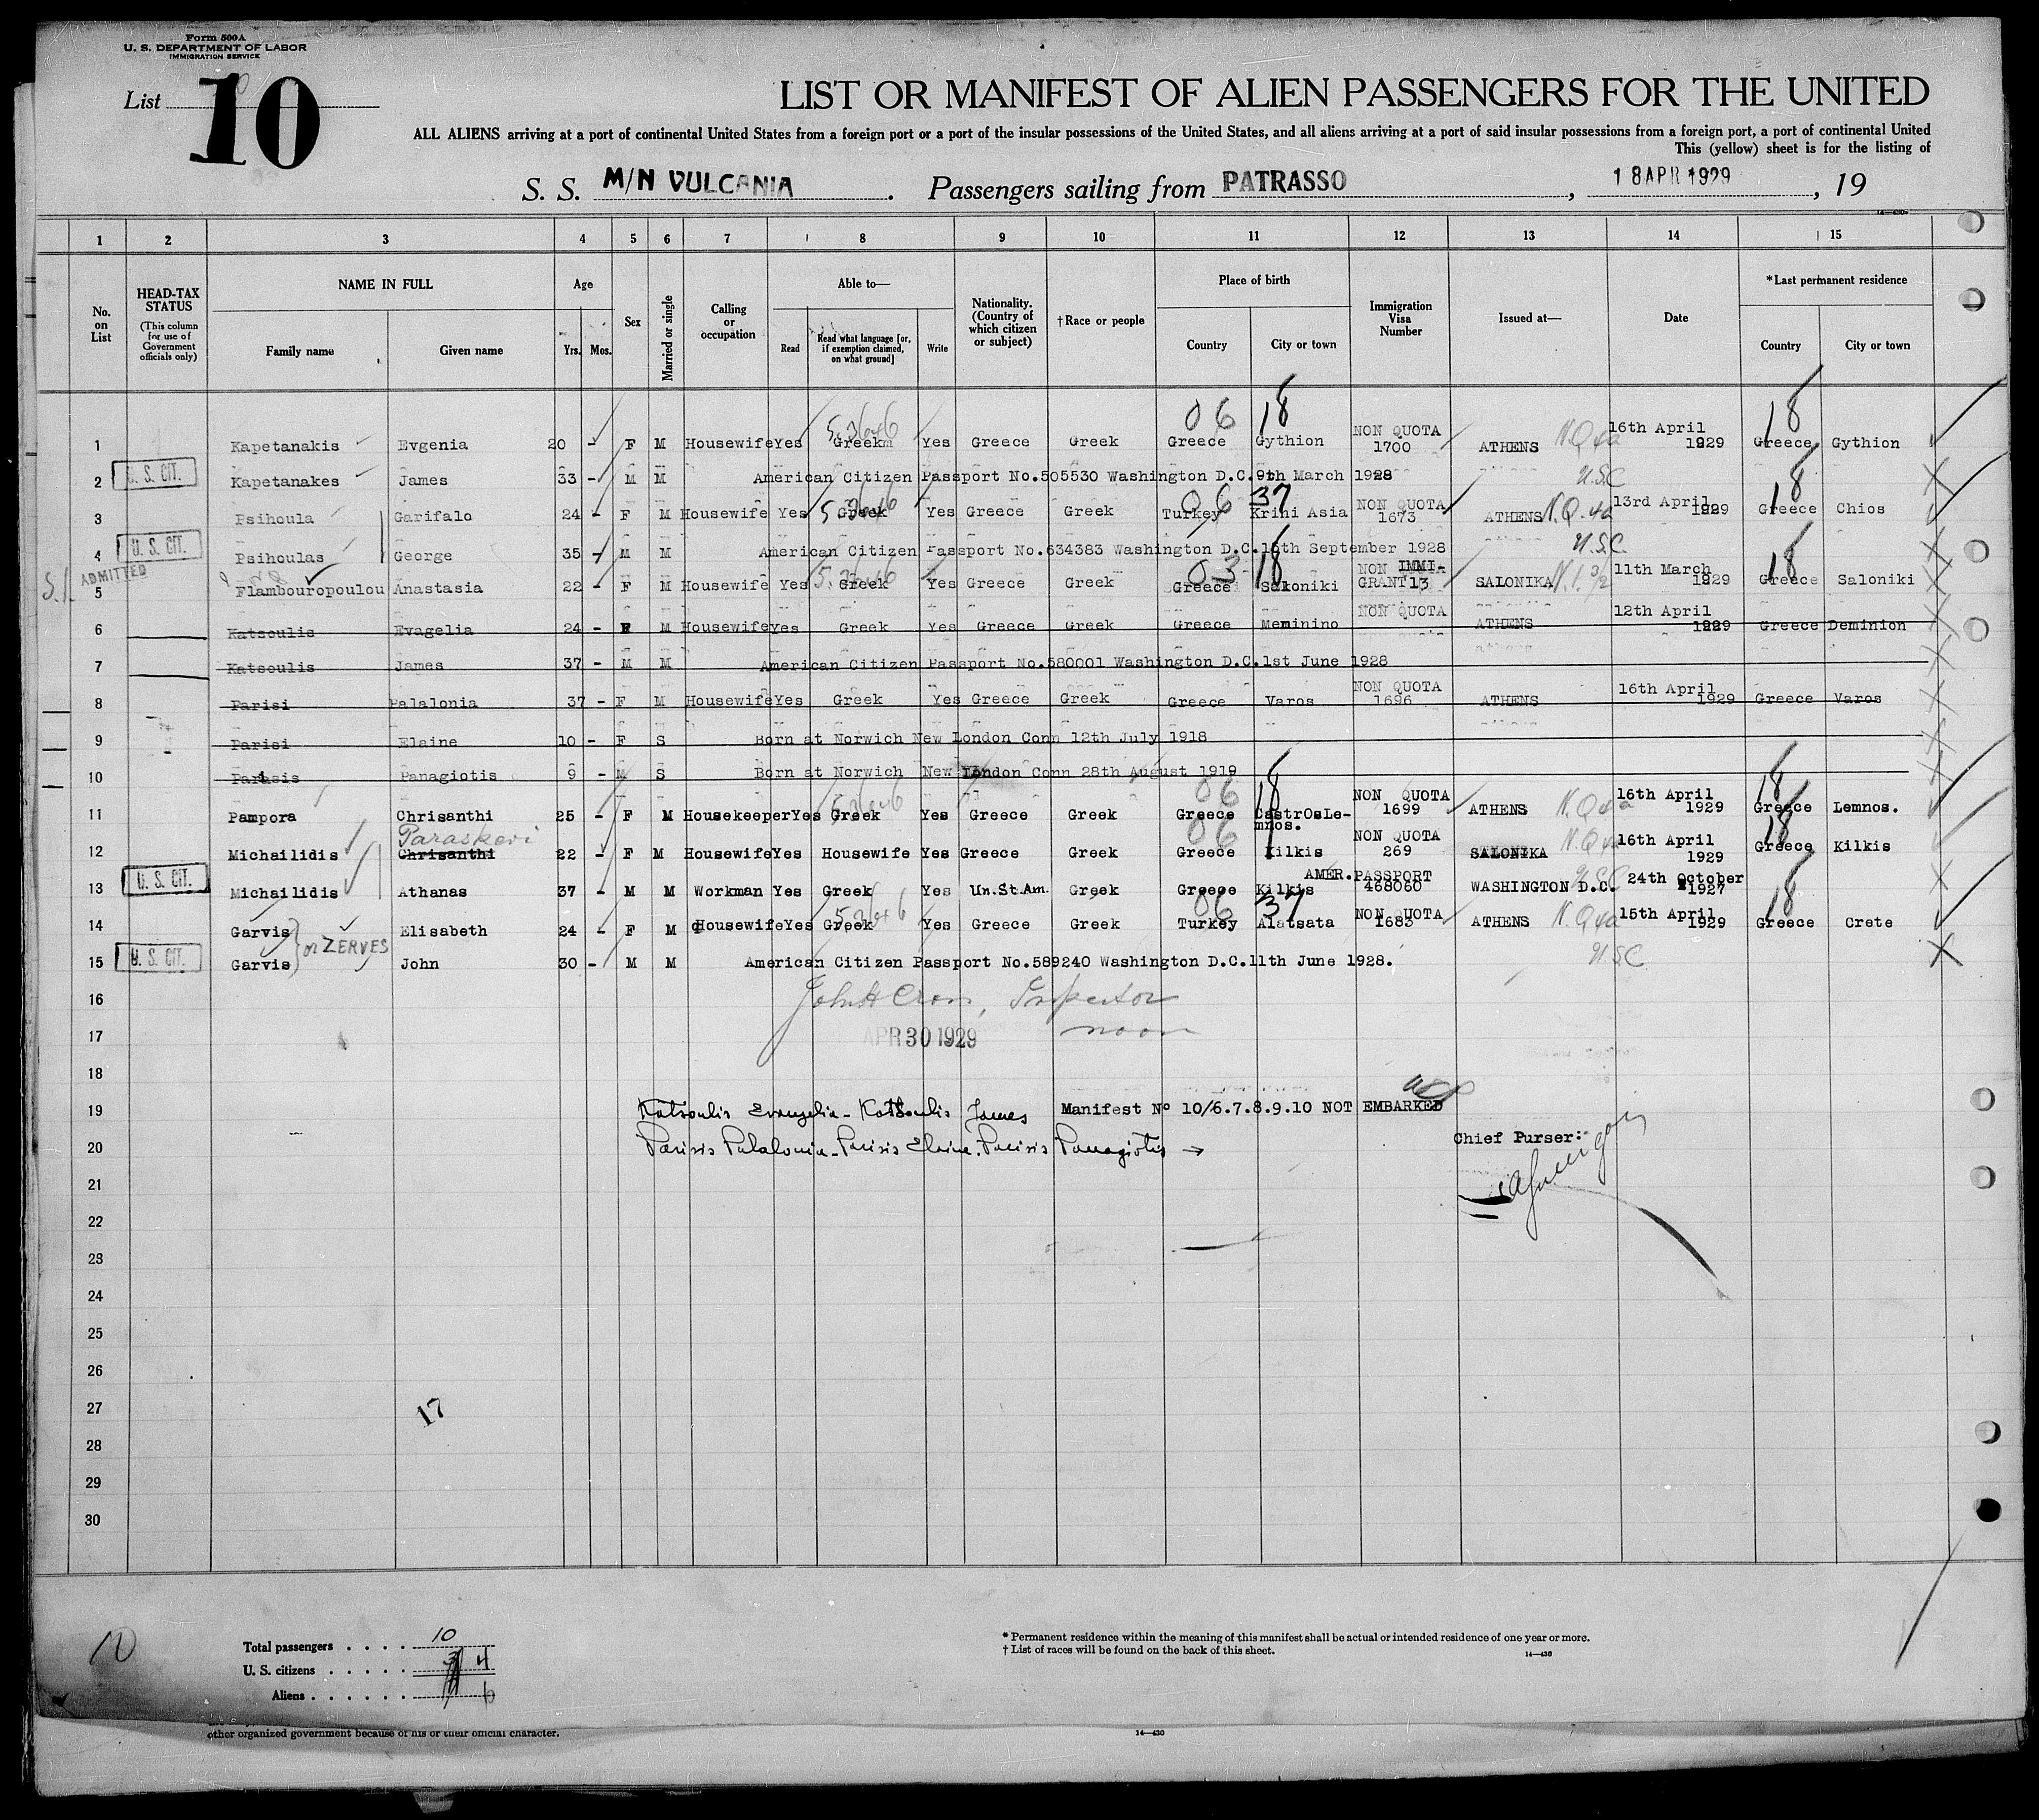 Form 500A
U. S. DEPARTMENT OF LABOR
IMMIGRATION SERVICE
List 10
LIST OR MANIFEST OF ALIEN PASSENGERS FOR THE UNITED
ALL ALIENS arriving at a port of continental United States from a foreign port or a port of the insular possessions of the United States, and all aliens arriving at a port of said insular possessions from a foreign port, a port of continental United
This (yellow) sheet is for the listing of
S. S. M/N VULCANIA . Passengers sailing from PATRASSO , 18 APR 1929 , 19
14—430
1 2 3 4 5 6 7 8 9 10 11 12 13 14 15
No. on List
HEAD-TAX STATUS (This column for use of Government officials only)
NAME IN FULL Family name Given name
Age Yrs. Mos.
Sex
Married or single
Calling or occupation
Able to— Read Read what language [or, if exemption claimed, on what ground] Write
Nationality. (Country of which citizen or subject)
†Race or people
Place of birth Country City or town
Immigration Visa Number
Issued at—
Date
*Last permanent residence Country City or town
06 18 18
1 Kapetanakis Evgenia 20 - F M Housewife Yes Greekm Yes Greece Greek Greece Gythion NON QUOTA 1700 ATHENS N.Q 4a 16th April 1929 Greece Gythion
U. S. CIT. 2 Kapetanakes James 33 - M M American Citizen Passport No.505530 Washington D.C.9th March 1928 U.S.C 18
06 37
3 Psihoula Garifalo 24 - F M Housewife Yes Greek Yes Greece Greek Turkey Krini Asia NON QUOTA 1673 ATHENS N.Q.4a 13rd April 1929 Greece Chios
U. S. CIT. 4 Psihoulas George 35 - M M American Citizen Passport No.634383 Washington D.C.15th September 1928 U.S.C. 18
S.I. ADMITTED 03 18
5 Flambouropoulou Anastasia 22 - F M Housewife Yes Greek Yes Greece Greek Greece Saloniki NON IMMI-GRANT 13 SALONIKA 11th March 1929 Greece Saloniki
6 Katsoulis Evagelia 24 - F M Housewife Yes Greek Yes Greece Greek Greece Meminino NON QUOTA ATHENS 12th April 1929 Greece Deminion
7 Katsoulis James 37 - M M American Citizen Passport No.580001 Washington D.C.1st June 1928
8 Parisi Palalonia 37 - F M Housewife Yes Greek Yes Greece Greek Greece Varos NON QUOTA 1696 ATHENS 16th April 1929 Greece Varos
9 Parisi Elaine 10 - F S Born at Norwich New London Conn 12th July 1918
10 Parisis Panagiotis 9 - M S Born at Norwich New London Conn 28th August 1919
06 18 18
11 Pampora Chrisanthi 25 - F M Housekeeper Yes Greek Yes Greece Greek Greece CastrOsLe-mnos. NON QUOTA 1699 ATHENS N.Q 4a 16th April 1929 Greece Lemnos.
Paraskevi 06 18
12 Michailidis Chrisanthi 22 - F M Housewife Yes Housewife Yes Greece Greek Greece Kilkis NON QUOTA 269 SALONIKA N.Q 4a 16th April 1929 Greece Kilkis
U. S. CIT. 13 Michailidis Athanas 37 - M M Workman Yes Greek Yes Un.St.Am. Greek Greece Kilkis AMER.PASSPORT 468060 WASHINGTON D.C. USC 24th October 1927 18
06 37
14 Garvis Elisabeth 24 - F M Housewife Yes Greek Yes Greece Greek Turkey Alatsata NON QUOTA 1683 ATHENS N.Q 4a 15th April 1929 Greece Crete
or ZERVES
U. S. CIT. 15 Garvis John 30 - M M American Citizen Passport No.589240 Washington D.C.11th June 1928. U.S.C
16 Inspector
17 APR 30 1929 noon
18
19 Katsoulis Evangelia - Katsoulis James Manifest Nº 10/6.7.8.9.10 NOT EMBARKED
20 Parisis Palalonia - Parisis Elaine. Parisis Panagiotis → Chief Purser:
21
22
23
24
25
26
27 17
28
29
30
10
Total passengers . . . . 10
U. S. citizens . . . . . 4
Aliens . . . . . . 6
* Permanent residence within the meaning of this manifest shall be actual or intended residence of one year or more.
† List of races will be found on the back of this sheet.
14—430
other organized government because of his or their official character.
14—430